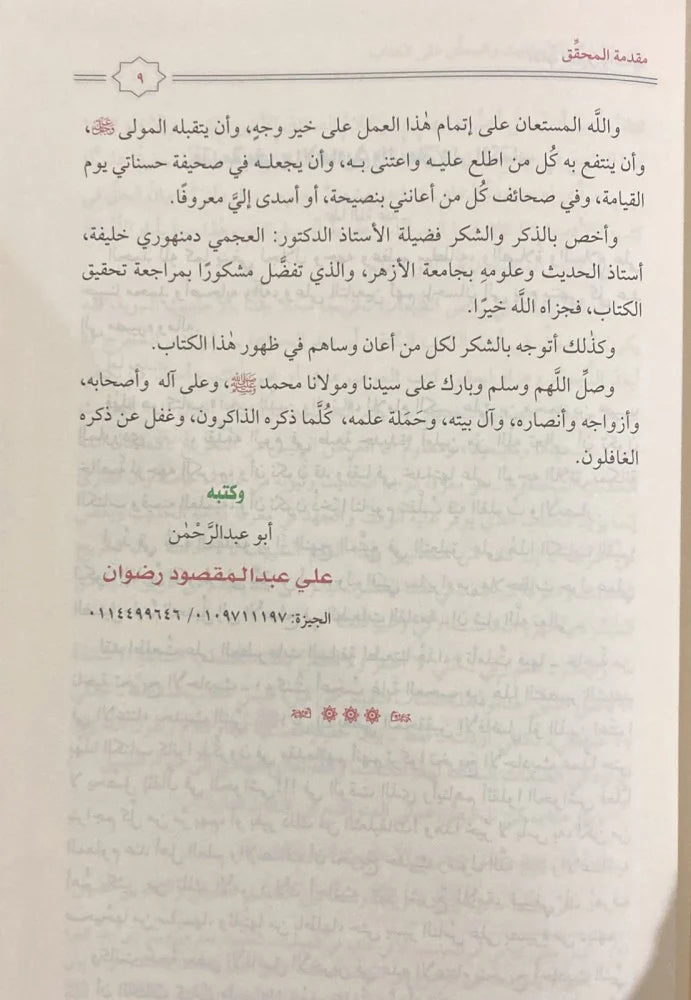 مقدمة المحقِّق
٩
واللَّه المستعان على إتمام هٰذا العمل على خير وجهٍ، وأن يتقبله المولى ﷿،
وأن ينتفع به كُل من اطلع عليه واعتنى به، وأن يجعله في صحيفة حسناتي يوم
القيامة، وفي صحائف كُل من أعانني بنصيحة، أو أسدى إليَّ معروفًا.
وأخص بالذكر والشكر فضيلة الأستاذ الدكتور: العجمي دمنهوري خليفة،
أستاذ الحديث وعلومهِ بجامعة الأزهر، والذي تفضَّل مشكورًا بمراجعة تحقيق
الكتاب، فجزاه اللَّه خيرًا.
وكذٰلك أتوجه بالشكر لكل من أعان وساهم في ظهور هٰذا الكتاب.
وصلِّ اللَّهم وسلم وبارك على سيدنا ومولانا محمد ﷺ، وعلى آله وأصحابه،
وأزواجه وأنصاره، وآل بيته، وحَمَلة علمه، كُلَّما ذكره الذاكرون، وغفل عن ذكره
الغافلون.
وكتبه
أبو عبدالرَّحْمٰن
علي عبدالمقصود رضوان
الجيزة: ٠١٠٩٧١١١٩٧/ ٠١١٤٤٩٩٦٤٦